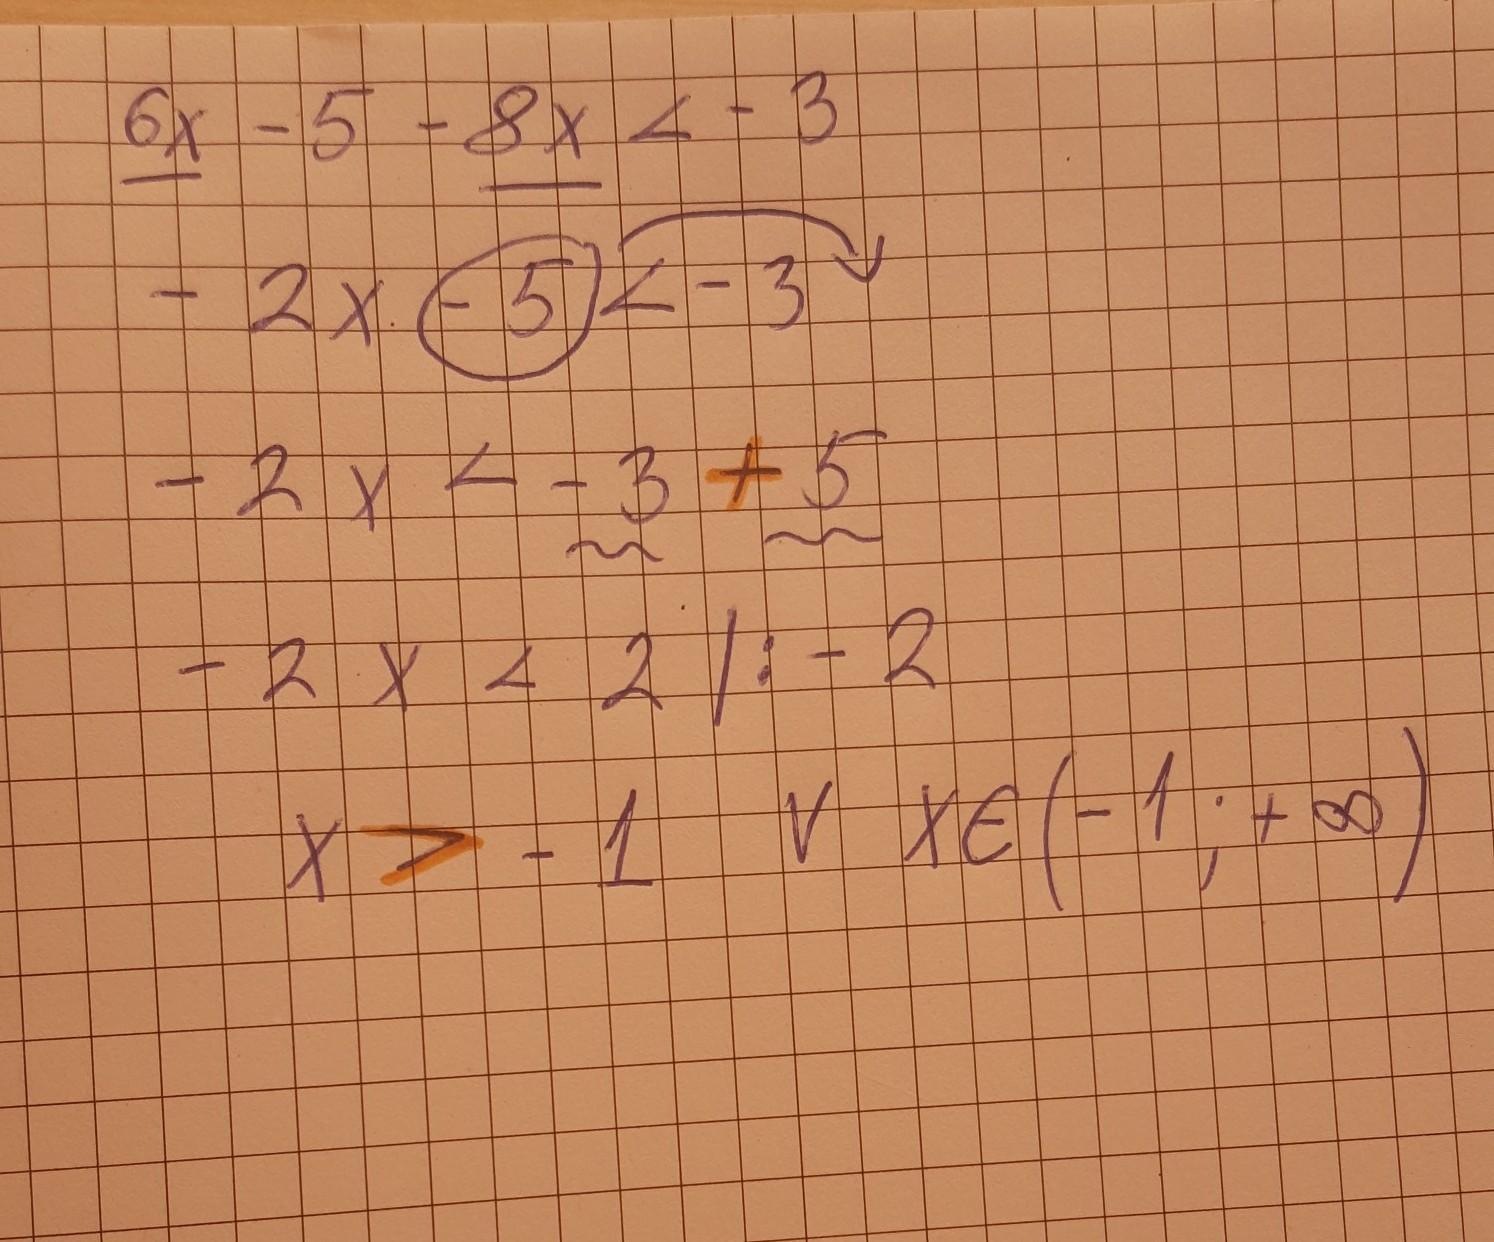 6x - 5 - 8x < - 3
- 2x - 5 < - 3
- 2x < - 3 + 5
- 2x < 2 /: - 2
x > - 1 ∨ x∈(- 1 ; + ∞)